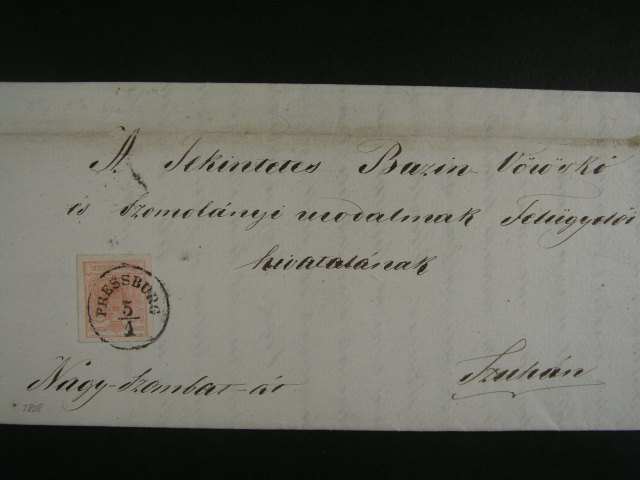 A Tekintetes Bazin-Vöröskő
és Szomolányi urodalmak Felügyelői
hivatalának
PRESSBURG
5/4
Nagy-Szombat-át
Szuhán